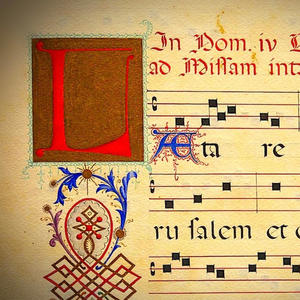 In Dom. iv
ad Missam int
LÆta re
ru salem et